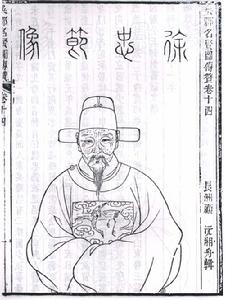 吳郡名賢圖傳贊卷十四
長洲顧 沅湘舟輯
徐忠節像
吳郡名賢圖傳贊 卷十四